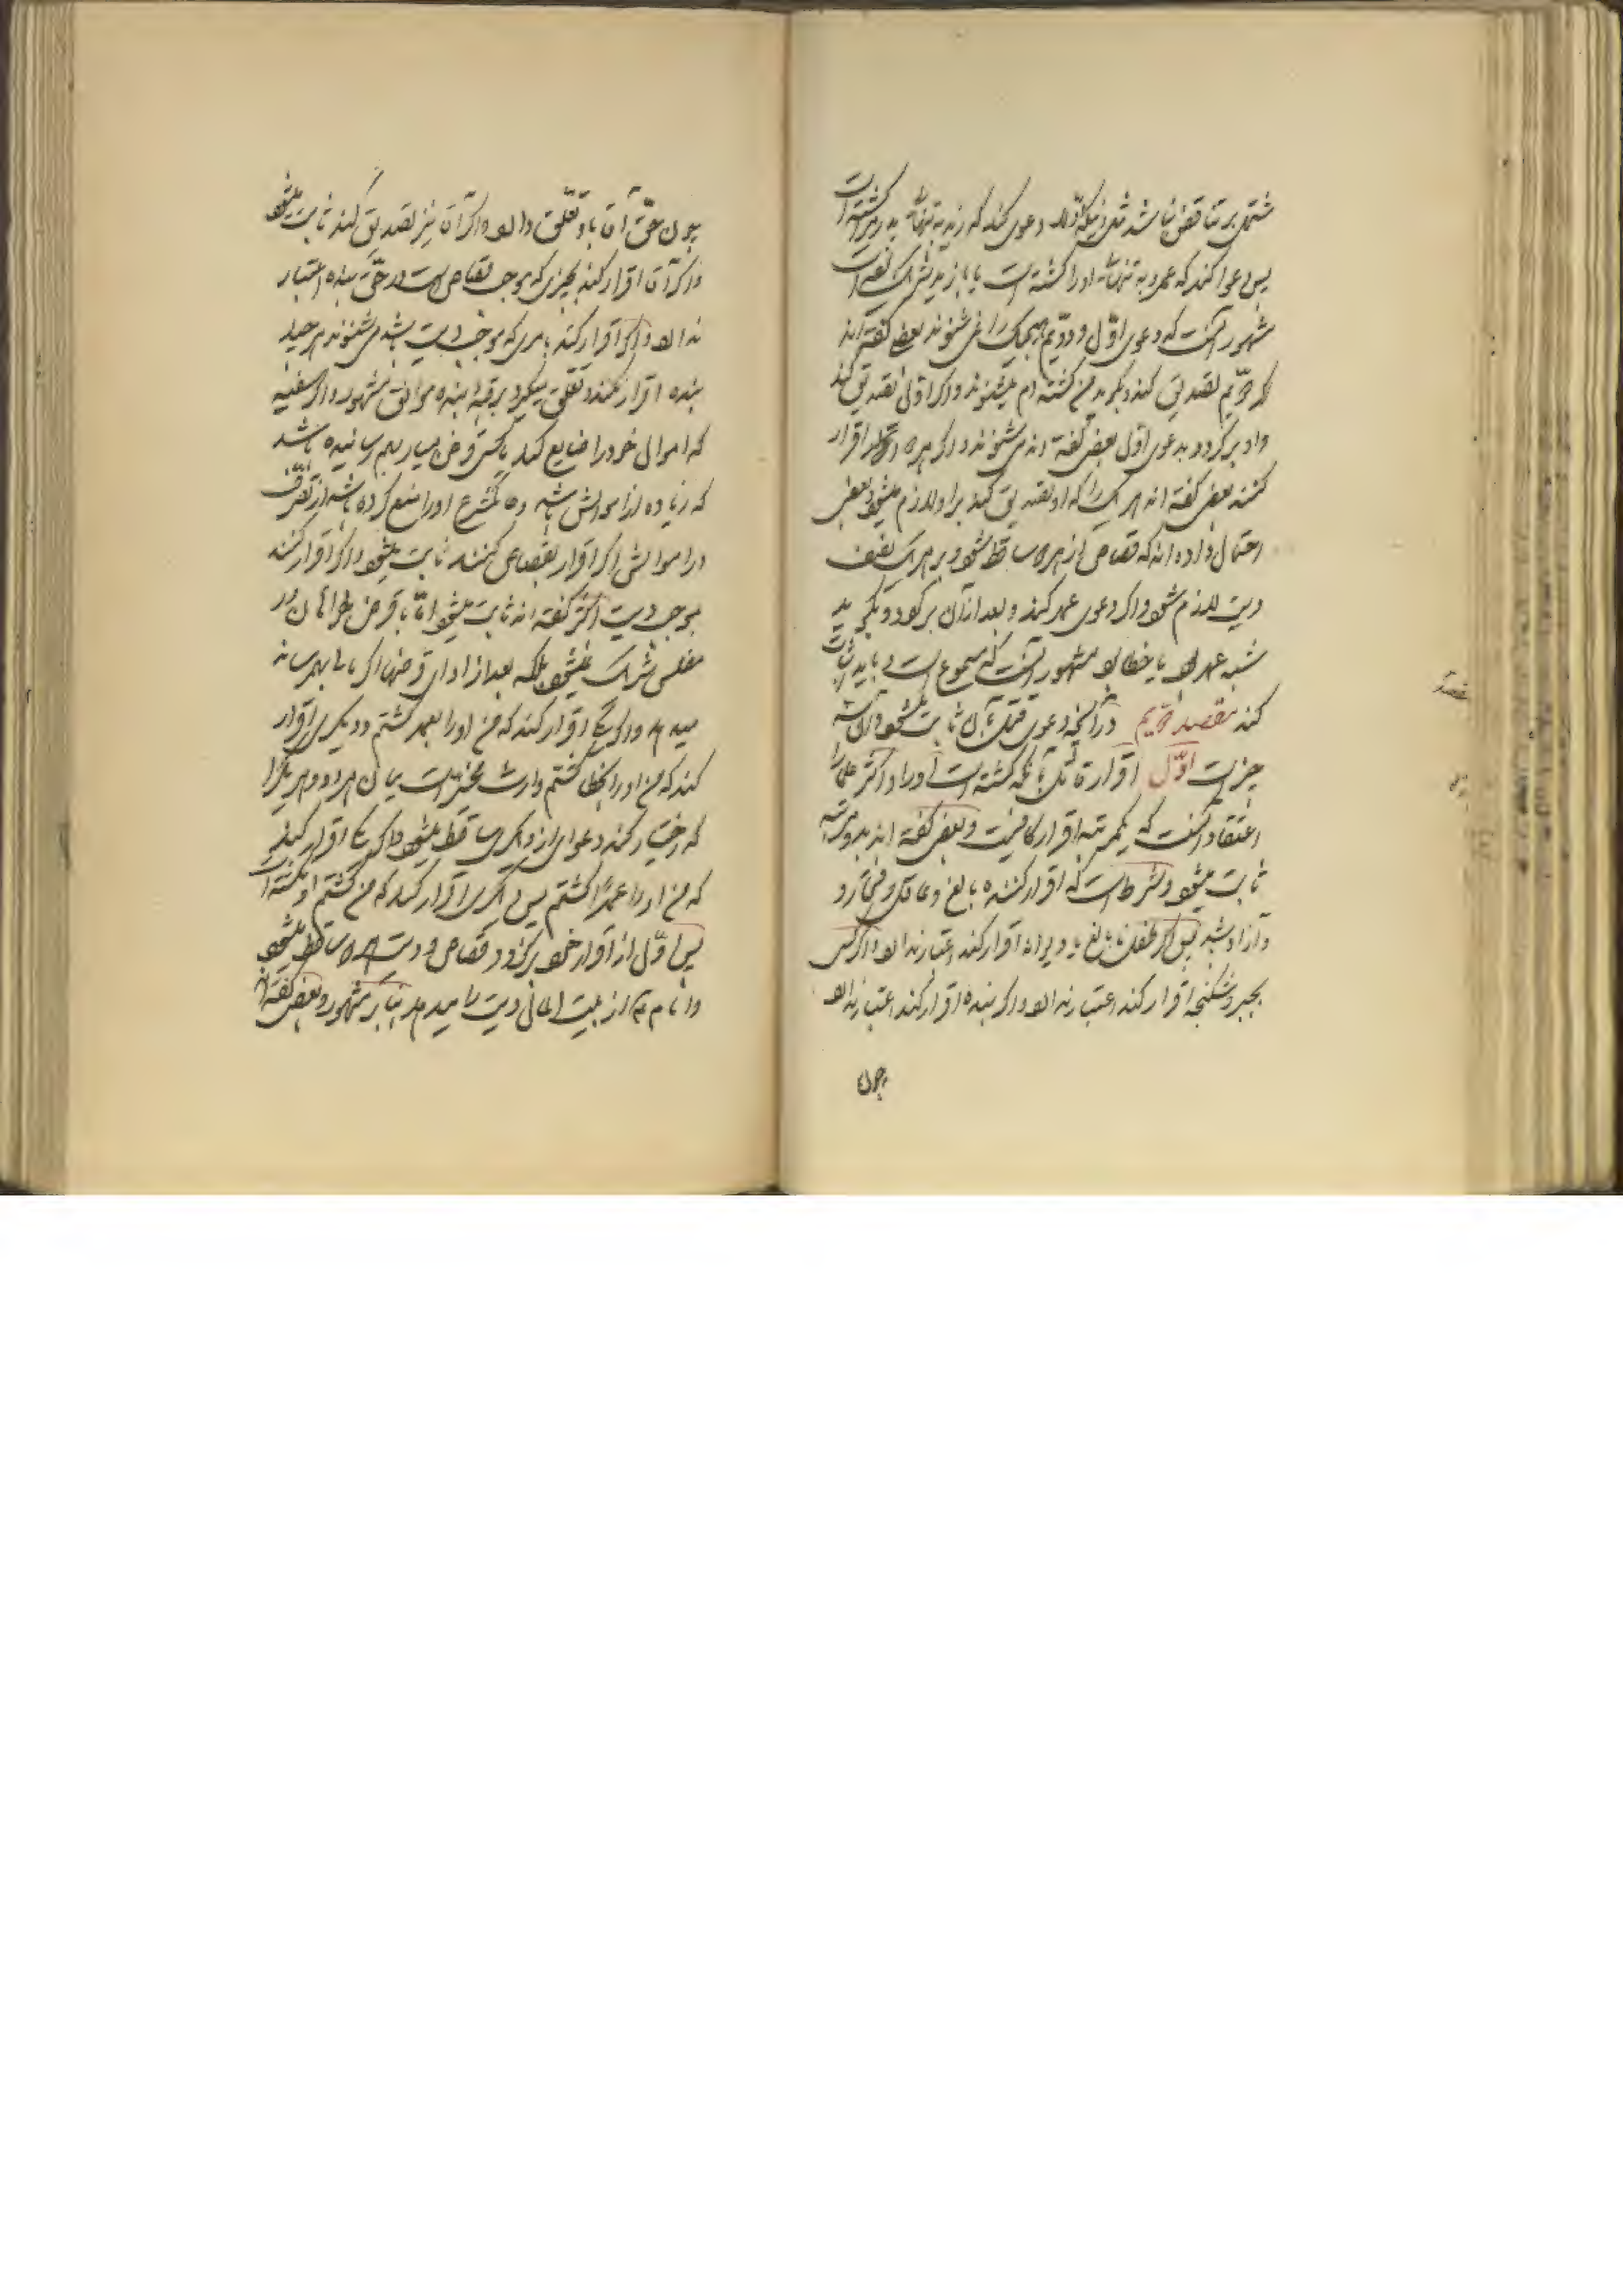 مشتمل بر تناقض نباشد مثل آنکه اول دعوی کند که زید به تنهائی پدر مرا کشته است
پس دعوا کند که عمرو به تنهائی او را کشته است یا با زید شریک بوده است
مشهور آنست که دعوی اول و دویم هیچیک را نمی شنوند بعضی گفته اند
که اگر دویم تصدیق کند و بگوید من کشته ام میشنوند و اگر اول تصدیق کند
و او برگردد بدعوی اول بعضی گفته اند می شنوند و اگر هر دو اقرار
کنند بعضی گفته اند هر یک را که او تصدیق کند بر او لازم میشود و بعضی
احتمال داده اند که قصاص از هر دو ساقط شود و بر هر یک نصف
دیت لازم شود و اگر دعوی عمد کند و بعد از آن برگردد و بگوید
شبه عمد بود یا خطا بود مشهور آنست که مسموع است و باید اثبات
کند مقصد دویم در آنچه دعوی قتل بآن ثابت میشود و آن سه
چیز است اول اقرار قاتل بآنکه کشته است او را و اکثر علما را
اعتقاد آنست که یکمرتبه اقرار کافیست و بعضی گفته اند بدو مرتبه
ثابت میشود و شرط است که اقرار کننده بالغ و عاقل و مختار
و آزاد باشد پس اگر طفل نابالغ یا دیوانه اقرار کند اعتبار ندارد و اگر کسی
بجبر و شکنجه اقرار کند اعتبار ندارد و اگر بنده اقرار کند اعتبار ندارد
چون
چون حق آقا باو تعلق دارد و اگر آقا نیز تصدیق کند ثابت میشود
و اگر آقا اقرار کند بچیزی که موجب قصاص است در حق بنده اعتبار
ندارد و اگر اقرار کند بامری که موجب دیت باشد می شنوند هر چند
بنده اقرار نکند و تعلق میگیرد برقبه بنده موافق مشهور و اگر سفیه
که اموال خود را ضایع کند یا کسی قرض بسیار بهم رسانیده باشد
که زیاده از اموالش باشد و حاکم شرع او را منع کرده باشد از تصرف
در اموالش اگر اقرار بقصاص کنند ثابت میشود و اگر اقرار کنند
بموجب دیت اکثر گفته اند ثابت میشود اما با قرض خواهان در
مفلس شریک نمیشود بلکه بعد از ادای قرضها اگر مالی بهمرساند
میدهد و اگر یکی اقرار کند که من او را بعمد کشتم و دیگری اقرار
کند که من او را بخطا کشتم وارث مخیر است میان هر دو و هر یک را
که اختیار کند دعوای از دیگری ساقط میشود و اگر یکی اقرار کند
که من او را عمدا کشتم پس دیگری اقرار کند که من کشتم او نکشته است
پس اول از اقرار خود برگردد قصاص و دیت از هر دو ساقط میشود
و امام از بیت المال دیت را میدهد بنا بر مشهور و بعضی گفته اند